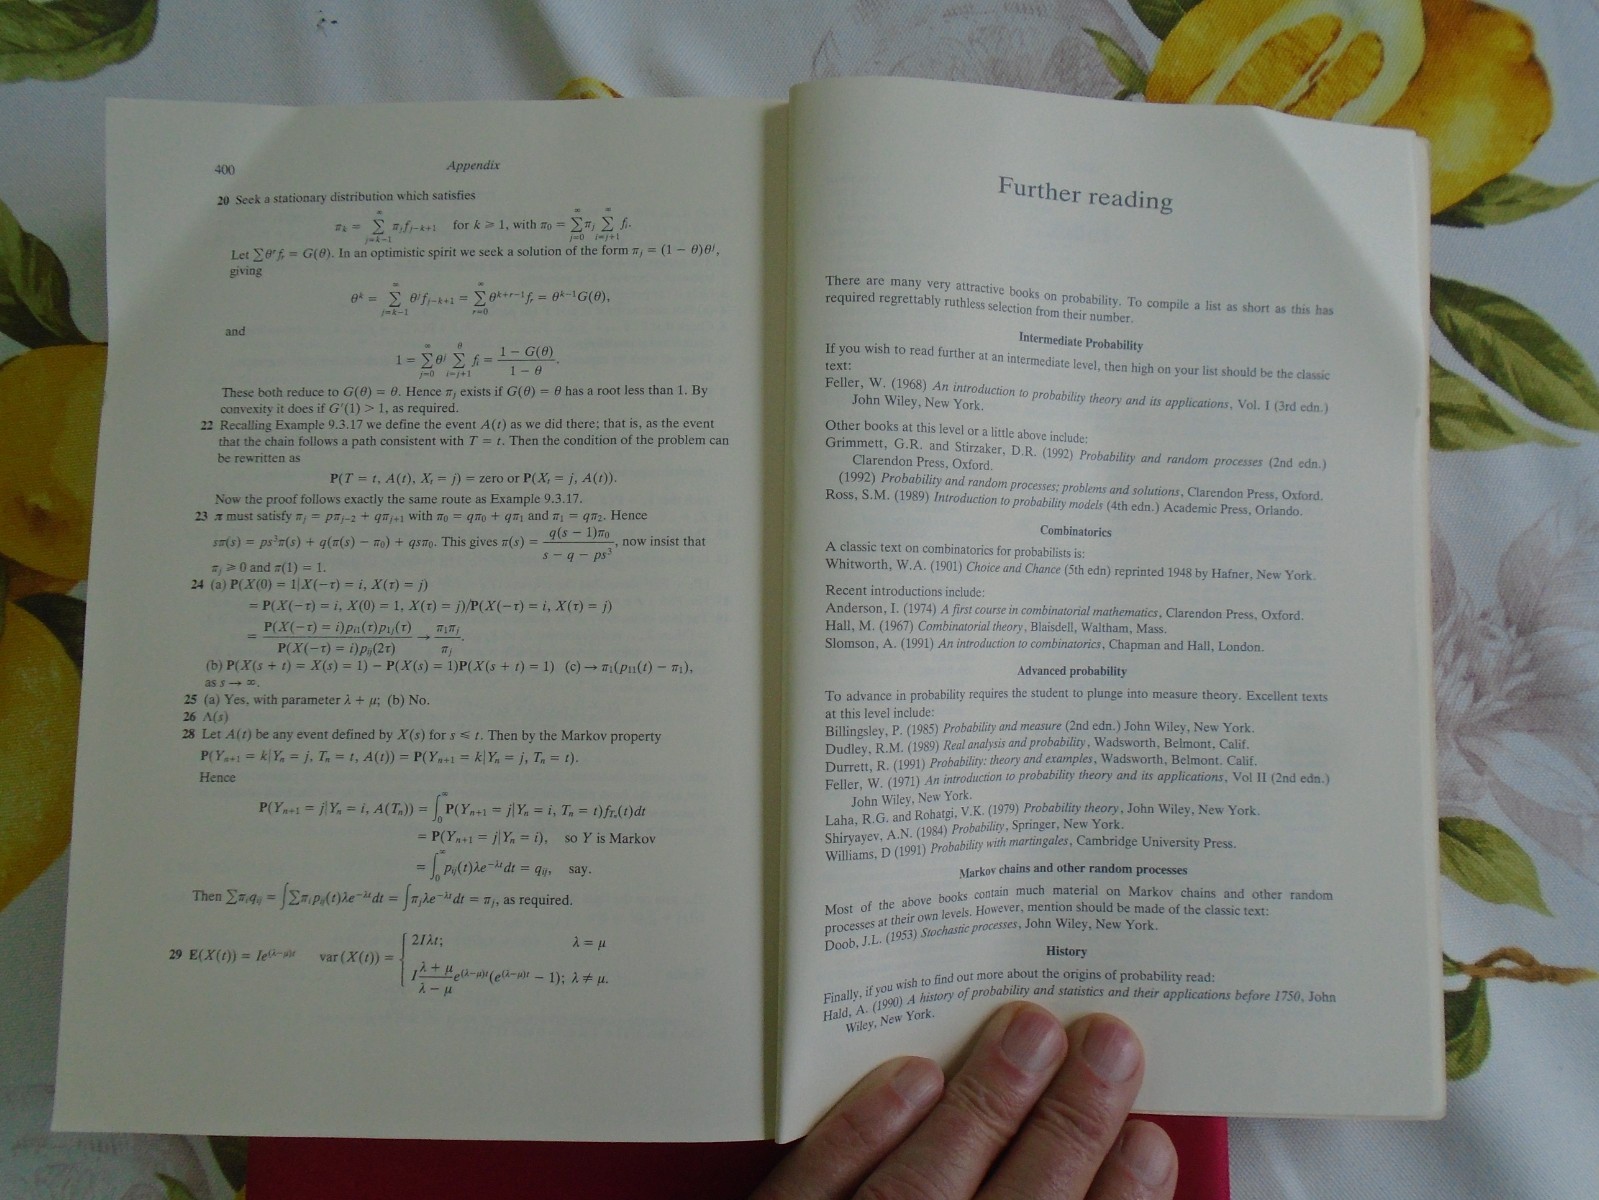 400
Appendix
20 Seek a stationary distribution which satisfies
πₖ = ∑_{j=k−1}^{∞} πⱼf_{j−k+1} for k ⩾ 1, with π₀ = ∑_{j=0}^{∞} πⱼ ∑_{i=j+1}^{∞} fᵢ.
Let ∑θʳfᵣ = G(θ). In an optimistic spirit we seek a solution of the form πⱼ = (1 − θ)θʲ,
giving
θᵏ = ∑_{j=k−1}^{∞} θʲf_{j−k+1} = ∑_{r=0}^{∞} θ^{k+r−1}fᵣ = θ^{k−1}G(θ),
and
1 = ∑_{j=0}^{∞} θʲ ∑_{i=j+1}^{θ} fᵢ = (1 − G(θ))/(1 − θ).
These both reduce to G(θ) = θ. Hence πⱼ exists if G(θ) = θ has a root less than 1. By
convexity it does if G′(1) > 1, as required.
22 Recalling Example 9.3.17 we define the event A(t) as we did there; that is, as the event
that the chain follows a path consistent with T = t. Then the condition of the problem can
be rewritten as
P(T = t, A(t), Xₜ = j) = zero or P(Xₜ = j, A(t)).
Now the proof follows exactly the same route as Example 9.3.17.
23 π must satisfy πⱼ = pπ_{j−2} + qπ_{j+1} with π₀ = qπ₀ + qπ₁ and π₁ = qπ₂. Hence
sπ(s) = ps³π(s) + q(π(s) − π₀) + qsπ₀. This gives π(s) = q(s − 1)π₀/(s − q − ps³), now insist that
πⱼ ⩾ 0 and π(1) = 1.
24 (a) P(X(0) = 1|X(−τ) = i, X(τ) = j)
= P(X(−τ) = i, X(0) = 1, X(τ) = j)/P(X(−τ) = i, X(τ) = j)
= P(X(−τ) = i)p_{i1}(τ)p_{1j}(τ)/P(X(−τ) = i)p_{ij}(2τ) → π₁πⱼ/πⱼ.
(b) P(X(s + t) = X(s) = 1) − P(X(s) = 1)P(X(s + t) = 1) (c) → π₁(p₁₁(t) − π₁),
as s → ∞.
25 (a) Yes, with parameter λ + μ; (b) No.
26 Λ(s)
28 Let A(t) be any event defined by X(s) for s ⩽ t. Then by the Markov property
P(Yₙ₊₁ = k|Yₙ = j, Tₙ = t, A(t)) = P(Yₙ₊₁ = k|Yₙ = j, Tₙ = t).
Hence
P(Yₙ₊₁ = j|Yₙ = i, A(Tₙ)) = ∫₀^∞ P(Yₙ₊₁ = j|Yₙ = i, Tₙ = t)f_{Tₙ}(t)dt
= P(Yₙ₊₁ = j|Yₙ = i), so Y is Markov
= ∫₀^∞ p_{ij}(t)λe^{−λt}dt = q_{ij}, say.
Then ∑πᵢq_{ij} = ∫∑πᵢp_{ij}(t)λe^{−λt}dt = ∫πⱼλe^{−λt}dt = πⱼ, as required.
29 E(X(t)) = Ie^{(λ−μ)t} var (X(t)) = { 2Iλt; λ = μ
I (λ + μ)/(λ − μ) e^{(λ−μ)t}(e^{(λ−μ)t} − 1); λ ≠ μ.
Further reading
There are many very attractive books on probability. To compile a list as short as this has
required regrettably ruthless selection from their number.
Intermediate Probability
If you wish to read further at an intermediate level, then high on your list should be the classic
text:
Feller, W. (1968) An introduction to probability theory and its applications, Vol. I (3rd edn.)
John Wiley, New York.
Other books at this level or a little above include:
Grimmett, G.R. and Stirzaker, D.R. (1992) Probability and random processes (2nd edn.)
Clarendon Press, Oxford.
(1992) Probability and random processes; problems and solutions, Clarendon Press, Oxford.
Ross, S.M. (1989) Introduction to probability models (4th edn.) Academic Press, Orlando.
Combinatorics
A classic text on combinatorics for probabilists is:
Whitworth, W.A. (1901) Choice and Chance (5th edn) reprinted 1948 by Hafner, New York.
Recent introductions include:
Anderson, I. (1974) A first course in combinatorial mathematics, Clarendon Press, Oxford.
Hall, M. (1967) Combinatorial theory, Blaisdell, Waltham, Mass.
Slomson, A. (1991) An introduction to combinatorics, Chapman and Hall, London.
Advanced probability
To advance in probability requires the student to plunge into measure theory. Excellent texts
at this level include:
Billingsley, P. (1985) Probability and measure (2nd edn.) John Wiley, New York.
Dudley, R.M. (1989) Real analysis and probability, Wadsworth, Belmont, Calif.
Durrett, R. (1991) Probability: theory and examples, Wadsworth, Belmont. Calif.
Feller, W. (1971) An introduction to probability theory and its applications, Vol II (2nd edn.)
John Wiley, New York.
Laha, R.G. and Rohatgi, V.K. (1979) Probability theory, John Wiley, New York.
Shiryayev, A.N. (1984) Probability, Springer, New York.
Williams, D (1991) Probability with martingales, Cambridge University Press.
Markov chains and other random processes
Most of the above books contain much material on Markov chains and other random
processes at their own levels. However, mention should be made of the classic text:
Doob, J.L. (1953) Stochastic processes, John Wiley, New York.
History
Finally, if you wish to find out more about the origins of probability read:
Hald, A. (1990) A history of probability and statistics and their applications before 1750, John
Wiley, New York.